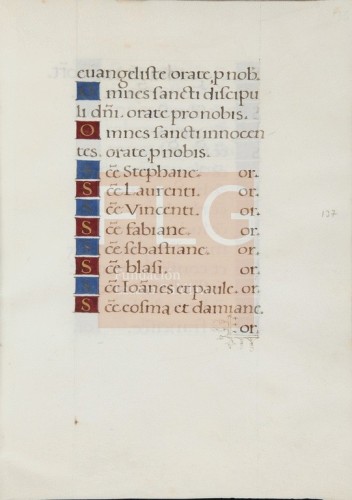 euangeliste orate, p nob̃.
Omnes sancti discipu
li dñi. orate pro nobis.
Omnes sancti innocen
tes. orate, p nobis.
Sc̃e Stephane. or.
Sc̃e Laurenti. or.
Sc̃e Vincenti. or.
Sc̃e fabiane. or.
Sc̃e sebastiane. or.
Sc̃e blasi. or.
Sc̃e Ioãnes et paule. or.
Sc̃e cosma et damiane.
or.
137
FLG
Fundación